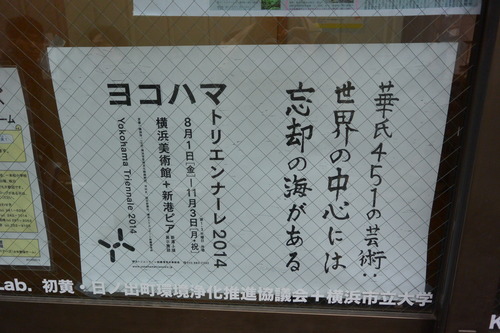 華氏451の芸術：
世界の中心には
忘却の海がある
ヨコハマトリエンナーレ2014
8月1日［金］—11月3日［月・祝］
横浜美術館＋新港ピア
Yokohama Triennale 2014
Lab. 初黄・日ノ出町環境浄化推進協議会＋横浜市立大学